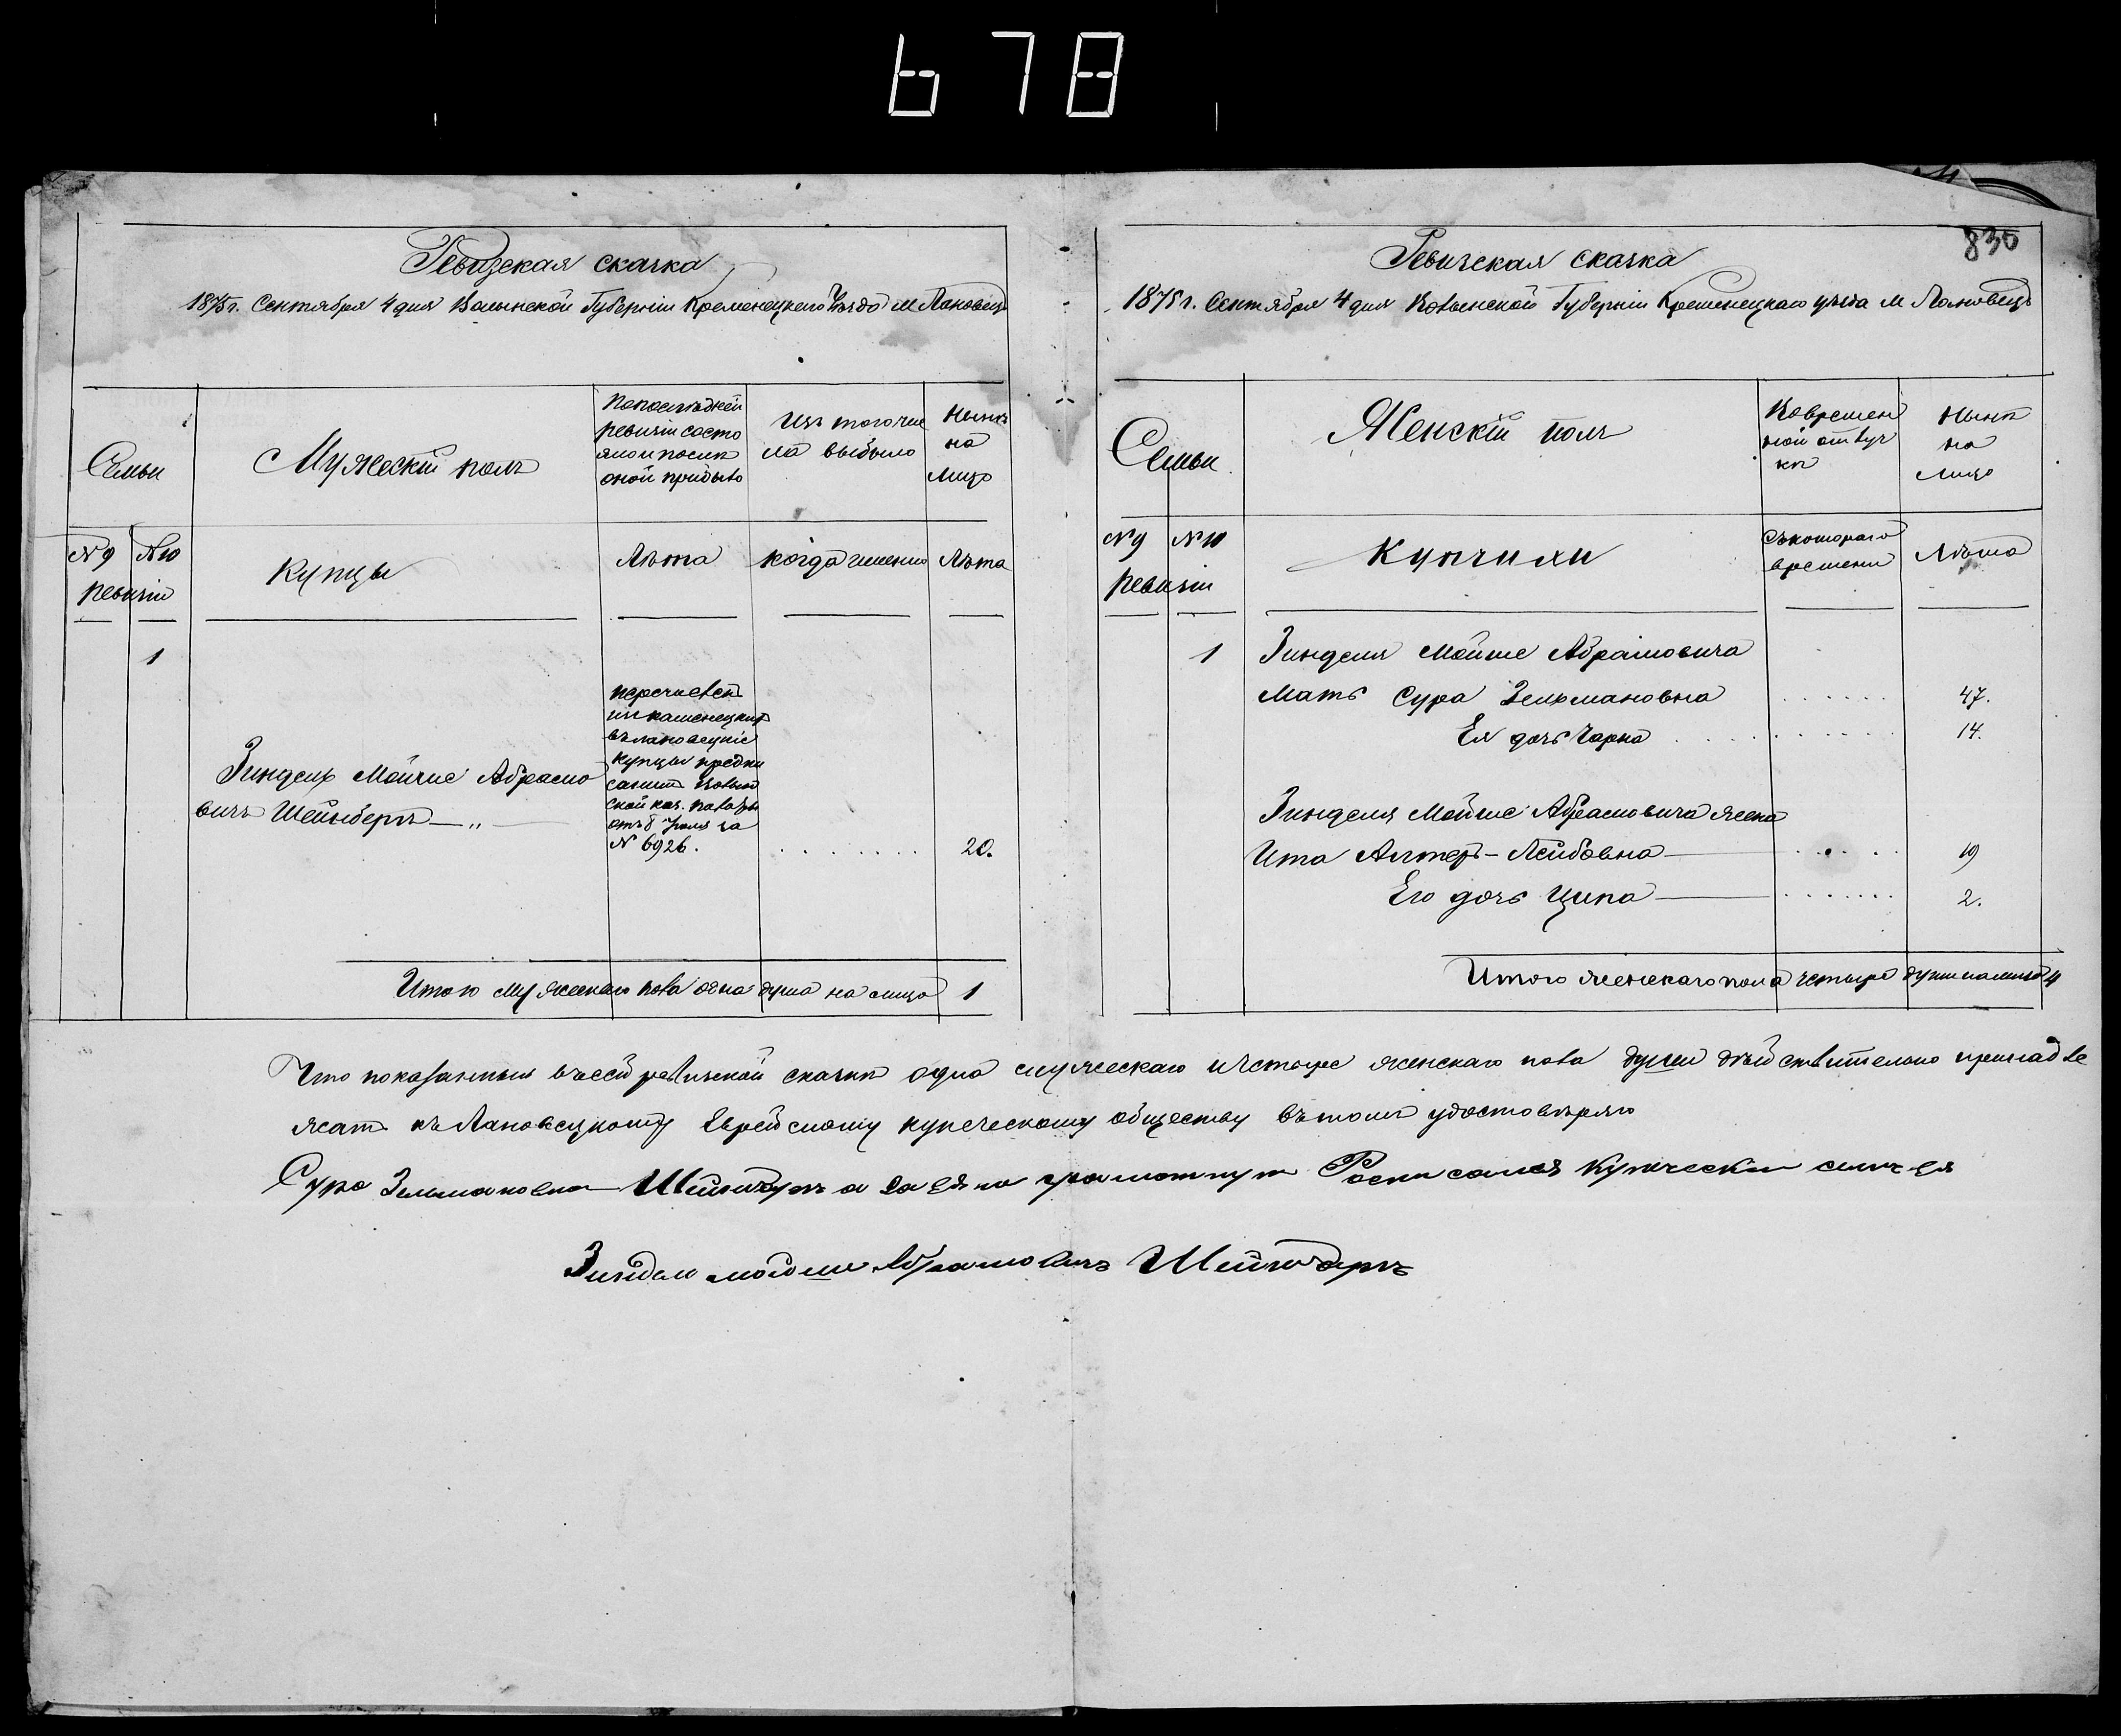 678
Ревизская сказка
1875 г. Сентября 4 дня Волынской Губерніи Кременецкаго Уѣзда м Лановецъ
Семьи
Мужескій полъ
Попослѣдней
ревизіи состо
яло и послѣ
оной прибыло
Изъ того чис
ла выбыло
Нынѣ
на
лицо
№ 9
№ 10
Ревизіи
Купцы
Лѣта
когда именно
Лѣта
1
перечислен
изъ каменецких
въ лановецкіе
купцы предпи
саніем Волын
ской каз. палаты
отъ 8 за
№ 6926.
Зиндель Мойше Абрамо
вичъ Шейнберг — „ —
20.
Итого мужескаго пола одна душа на лицо 1
830
Ревизская сказка
1875 г. Сентября 4 дня Волынской Губерніи Кременецкаго уѣзда м Лановецъ
Семьи
Женскій полъ
Вовремен
ной отлуч
кѣ
Нынѣ
на
лицо
№ 9
№ 10
Ревизіи
Купчихи
Съкотораго
времени
Лѣта
1
Зинделя Мойше Абрамовича
Мать Сура Зельмановна 47.
Ея дочь Чарна 14.
Зинделя Мойше Абрамовича жена
Ита Алтеръ-Лейбовна 19
Его дочь Ципа 2.
Итого женскаго пола четыре души на лицо 4
Что показанныя въ сей ревизской сказкѣ одна мужескаго и четыре женскаго пола души дѣйствительно принадле
жат къ Лановецкому Еврейскому купеческому обществу въ томъ удостовѣряю
Сура Зельмановна Шейнберг а за ея не грамотную Росписался Купеческий сынъ ея
Зиндель мойше Абрамовичъ Шейнберг